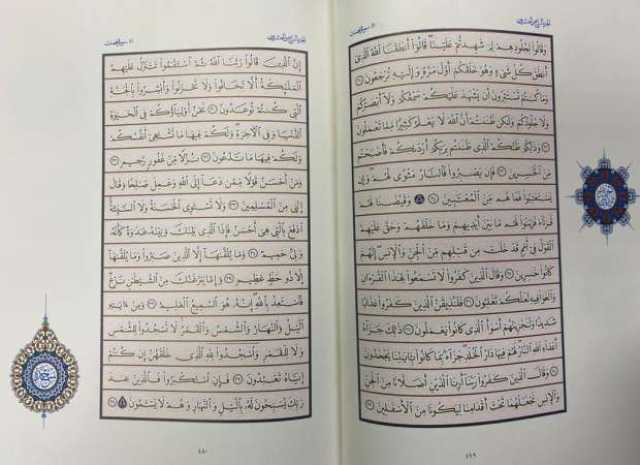 وَقَالُوا۟ لِجُلُودِهِمْ لِمَ شَهِدتُّمْ عَلَيْنَا ۖ قَالُوٓا۟ أَنطَقَنَا ٱللَّهُ ٱلَّذِىٓ
أَنطَقَ كُلَّ شَىْءٍ وَهُوَ خَلَقَكُمْ أَوَّلَ مَرَّةٍ وَإِلَيْهِ تُرْجَعُونَ ٢١
وَمَا كُنتُمْ تَسْتَتِرُونَ أَن يَشْهَدَ عَلَيْكُمْ سَمْعُكُمْ وَلَآ أَبْصَٰرُكُمْ
وَلَا جُلُودُكُمْ وَلَٰكِن ظَنَنتُمْ أَنَّ ٱللَّهَ لَا يَعْلَمُ كَثِيرًا مِّمَّا تَعْمَلُونَ
٢٢ وَذَٰلِكُمْ ظَنُّكُمُ ٱلَّذِى ظَنَنتُم بِرَبِّكُمْ أَرْدَىٰكُمْ فَأَصْبَحْتُم
مِّنَ ٱلْخَٰسِرِينَ ٢٣ فَإِن يَصْبِرُوا۟ فَٱلنَّارُ مَثْوًى لَّهُمْ ۖ وَإِن
يَسْتَعْتِبُوا۟ فَمَا هُم مِّنَ ٱلْمُعْتَبِينَ ٢٤ وَقَيَّضْنَا لَهُمْ
قُرَنَآءَ فَزَيَّنُوا۟ لَهُم مَّا بَيْنَ أَيْدِيهِمْ وَمَا خَلْفَهُمْ وَحَقَّ عَلَيْهِمُ
ٱلْقَوْلُ فِىٓ أُمَمٍ قَدْ خَلَتْ مِن قَبْلِهِم مِّنَ ٱلْجِنِّ وَٱلْإِنسِ ۖ إِنَّهُمْ
كَانُوا۟ خَٰسِرِينَ ٢٥ وَقَالَ ٱلَّذِينَ كَفَرُوا۟ لَا تَسْمَعُوا۟ لِهَٰذَا ٱلْقُرْءَانِ
وَٱلْغَوْا۟ فِيهِ لَعَلَّكُمْ تَغْلِبُونَ ٢٦ فَلَنُذِيقَنَّ ٱلَّذِينَ كَفَرُوا۟ عَذَابًا
شَدِيدًا وَلَنَجْزِيَنَّهُمْ أَسْوَأَ ٱلَّذِى كَانُوا۟ يَعْمَلُونَ ٢٧ ذَٰلِكَ جَزَآءُ
أَعْدَآءِ ٱللَّهِ ٱلنَّارُ ۖ لَهُمْ فِيهَا دَارُ ٱلْخُلْدِ ۖ جَزَآءًۢ بِمَا كَانُوا۟ بِـَٔايَٰتِنَا يَجْحَدُونَ
٢٨ وَقَالَ ٱلَّذِينَ كَفَرُوا۟ رَبَّنَآ أَرِنَا ٱلَّذَيْنِ أَضَلَّانَا مِنَ ٱلْجِنِّ
وَٱلْإِنسِ نَجْعَلْهُمَا تَحْتَ أَقْدَامِنَا لِيَكُونَا مِنَ ٱلْأَسْفَلِينَ ٢٩
٤٧٩
إِنَّ ٱلَّذِينَ قَالُوا۟ رَبُّنَا ٱللَّهُ ثُمَّ ٱسْتَقَٰمُوا۟ تَتَنَزَّلُ عَلَيْهِمُ
ٱلْمَلَٰٓئِكَةُ أَلَّا تَخَافُوا۟ وَلَا تَحْزَنُوا۟ وَأَبْشِرُوا۟ بِٱلْجَنَّةِ
ٱلَّتِى كُنتُمْ تُوعَدُونَ ٣٠ نَحْنُ أَوْلِيَآؤُكُمْ فِى ٱلْحَيَوٰةِ
ٱلدُّنْيَا وَفِى ٱلْءَاخِرَةِ ۖ وَلَكُمْ فِيهَا مَا تَشْتَهِىٓ أَنفُسُكُمْ
وَلَكُمْ فِيهَا مَا تَدَّعُونَ ٣١ نُزُلًا مِّنْ غَفُورٍ رَّحِيمٍ ٣٢
وَمَنْ أَحْسَنُ قَوْلًا مِّمَّن دَعَآ إِلَى ٱللَّهِ وَعَمِلَ صَٰلِحًا وَقَالَ
إِنَّنِى مِنَ ٱلْمُسْلِمِينَ ٣٣ وَلَا تَسْتَوِى ٱلْحَسَنَةُ وَلَا ٱلسَّيِّئَةُ ۚ
ٱدْفَعْ بِٱلَّتِى هِىَ أَحْسَنُ فَإِذَا ٱلَّذِى بَيْنَكَ وَبَيْنَهُۥ عَدَٰوَةٌ كَأَنَّهُۥ
وَلِىٌّ حَمِيمٌ ٣٤ وَمَا يُلَقَّىٰهَآ إِلَّا ٱلَّذِينَ صَبَرُوا۟ وَمَا يُلَقَّىٰهَآ
إِلَّا ذُو حَظٍّ عَظِيمٍ ٣٥ وَإِمَّا يَنزَغَنَّكَ مِنَ ٱلشَّيْطَٰنِ نَزْغٌ
فَٱسْتَعِذْ بِٱللَّهِ ۖ إِنَّهُۥ هُوَ ٱلسَّمِيعُ ٱلْعَلِيمُ ٣٦ وَمِنْ ءَايَٰتِهِ
ٱلَّيْلُ وَٱلنَّهَارُ وَٱلشَّمْسُ وَٱلْقَمَرُ ۚ لَا تَسْجُدُوا۟ لِلشَّمْسِ
وَلَا لِلْقَمَرِ وَٱسْجُدُوا۟ لِلَّهِ ٱلَّذِى خَلَقَهُنَّ إِن كُنتُمْ
إِيَّاهُ تَعْبُدُونَ ٣٧ فَإِنِ ٱسْتَكْبَرُوا۟ فَٱلَّذِينَ عِندَ
رَبِّكَ يُسَبِّحُونَ لَهُۥ بِٱلَّيْلِ وَٱلنَّهَارِ وَهُمْ لَا يَسْـَٔمُونَ ۩ ٣٨
٤٨٠